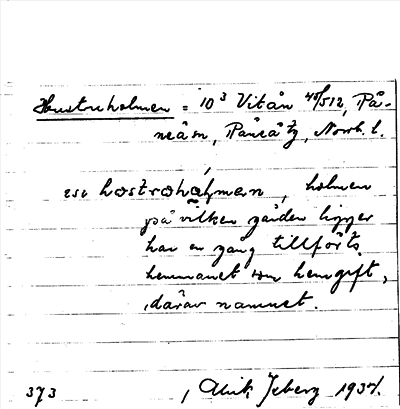 Hustruholmen = 10³ Vitån 45/512, På-
neåsn, Råneå tg, Norrb. l.
hostrohaɬman, holmen
på vilken gården ligger
har en gång tillförts
hemmanet som hemgift,
därav namnet.
373
, Alrik Isberg 1937.